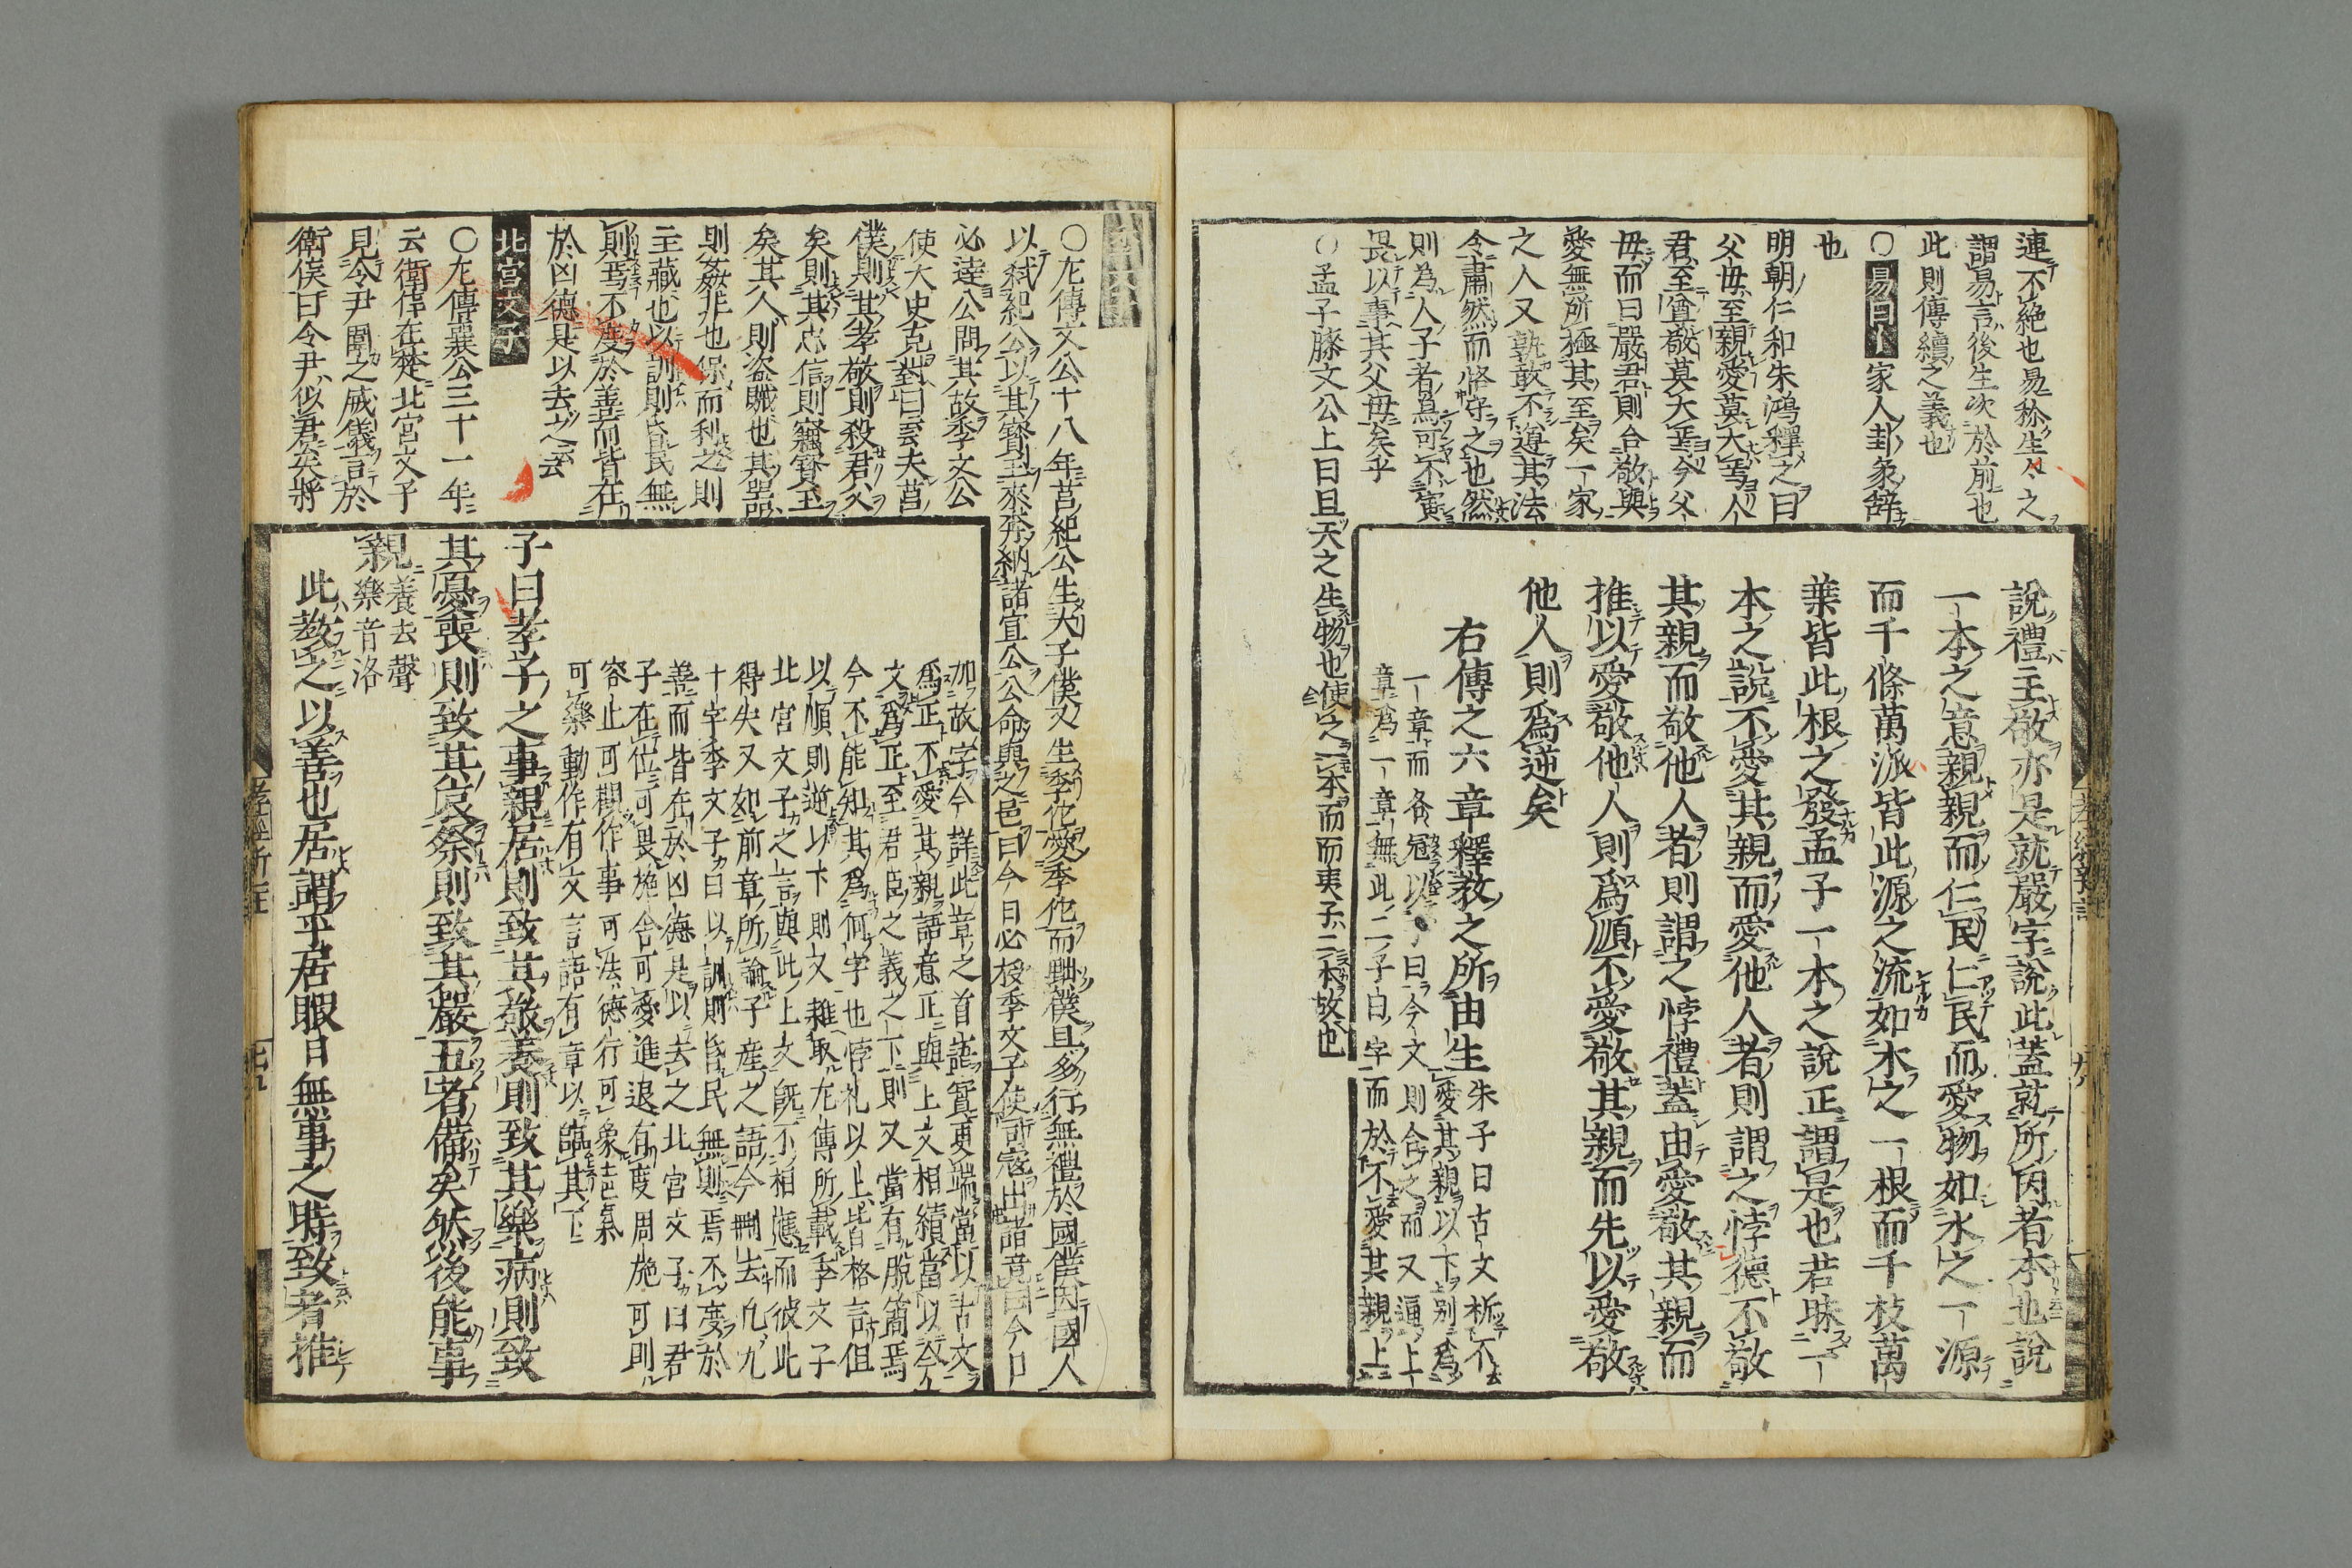 連不絶也易称生々之
謂易言後生次於前也
此則傳續之義也
○易曰 家人卦彖辞
也
明朝仁和朱鴻釋之曰
父母至親愛莫大焉人
君至尊敬莫大焉今父
母而曰嚴君則合敬與
愛無所極其至矣一家
之人又孰敢不遵其法
令肅然而恪守之也然
則為人子者烏可不寅
畏以事其父母矣乎
○孟子滕文公上曰且天之生物也使之一本而而夷子二本故也
說禮主敬亦是就嚴字說此蓋就所因者本也說
一本之意親親而仁民仁民而愛物如水之一源
而千條萬派皆此源之流如木之一根而千枝萬
葉皆此根之發孟子一本之說正謂是也若昧一
本之說不愛其親而愛他人者則謂之悖德不敬
其親而敬他人者則謂之悖禮蓋由愛敬其親而
推以愛敬他人則爲順不愛敬其親而先以愛敬
他人則爲逆矣
右傳之六章釋教之所由生
朱子曰古文析不
愛其親以下別爲
一章而各冠以子曰今文則合之而又通上
章爲一章無此二子曰字而於不愛其親上
孝經
九
○左傳文公十八年莒紀公生大子僕又生季佗愛季佗而黜僕且多行無禮於國僕因國人
以弑紀公以其寶玉來奔納諸宣公公命與之邑曰今日必授季文子使司寇出諸竟曰今日
必達公問其故季文公
使大史克對曰云云夫莒
僕則其孝敬則殺君父
矣則其忠信則竊寶玉
矣其人則盗賊也其器
則姦非也保而利之則
主藏也以訓則昏民無
則焉不度於善而皆在
於凶德是以去之云云
北宮文子
○左傳襄公三十一年
云衛侯在楚北宮文子
見令尹圍之威儀言於
衛侯曰令尹似君矣將
加故字今詳此章之首語實更端當以古文
爲正不愛其親語意正與上文相續當以今
文爲正至君臣之義之下則又當有脫簡焉
今不能知其爲何字也悖礼以上皆格言但
以順則逆以下則又雜取左傳所載季文子
北宮文子之言與此上文旣不相應而彼此
得失又如前章所論子産之語今刪去凡九
十字季文子曰以訓則昏民無則焉不度於
善而皆在於凶德是以去之北宮文子曰君
子在位可畏施舍可愛進退有度周旋可則
容止可觀作事可法德行可象声氣
可樂動作有文言語有章以臨其下
子曰孝子之事親居則致其敬養則致其樂病則致
其憂喪則致其哀祭則致其嚴五者備矣然後能事
親
養去聲
樂音洛
此教之以善也居謂平居暇日無事之時致者推
孝經